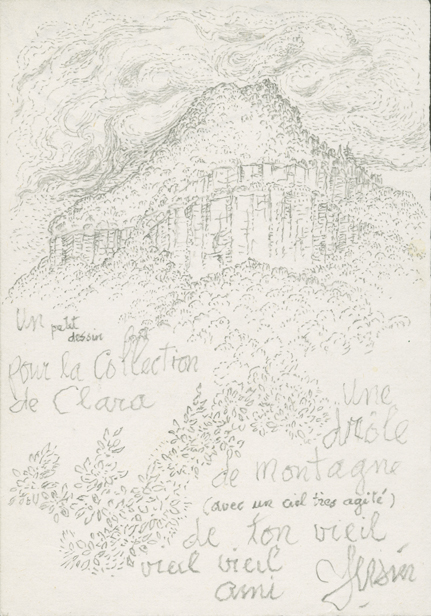 Un petit dessin
pour la Collection
de Clara
une
drôle
de montagne
(avec un ciel très agité)
de ton vieil
vieil vieil
ami